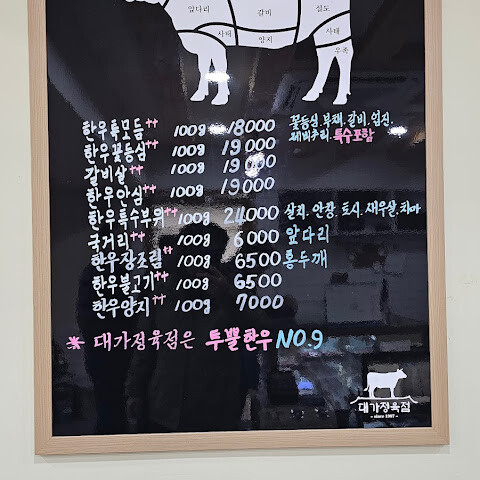 앞다리 갈비 설도
사태 양지 사태
우족
한우특모듬++ 100g 18000 꽃등심.부채.갈비.업진.
제비추리.특수포함
한우꽃등심++ 100g 19000
갈비살++ 100g 19000
한우안심++ 100g 19000
한우특수부위++ 100g 24000 살치.안창.토시.새우살.치마
국거리++ 100g 6000 앞다리
한우장조림++ 100g 6500 홍두깨
한우불고기++ 100g 6500
한우양지++ 100g 7000
* 대가정육점은 투뿔한우 NO.9
대가정육점
- since 1987 -